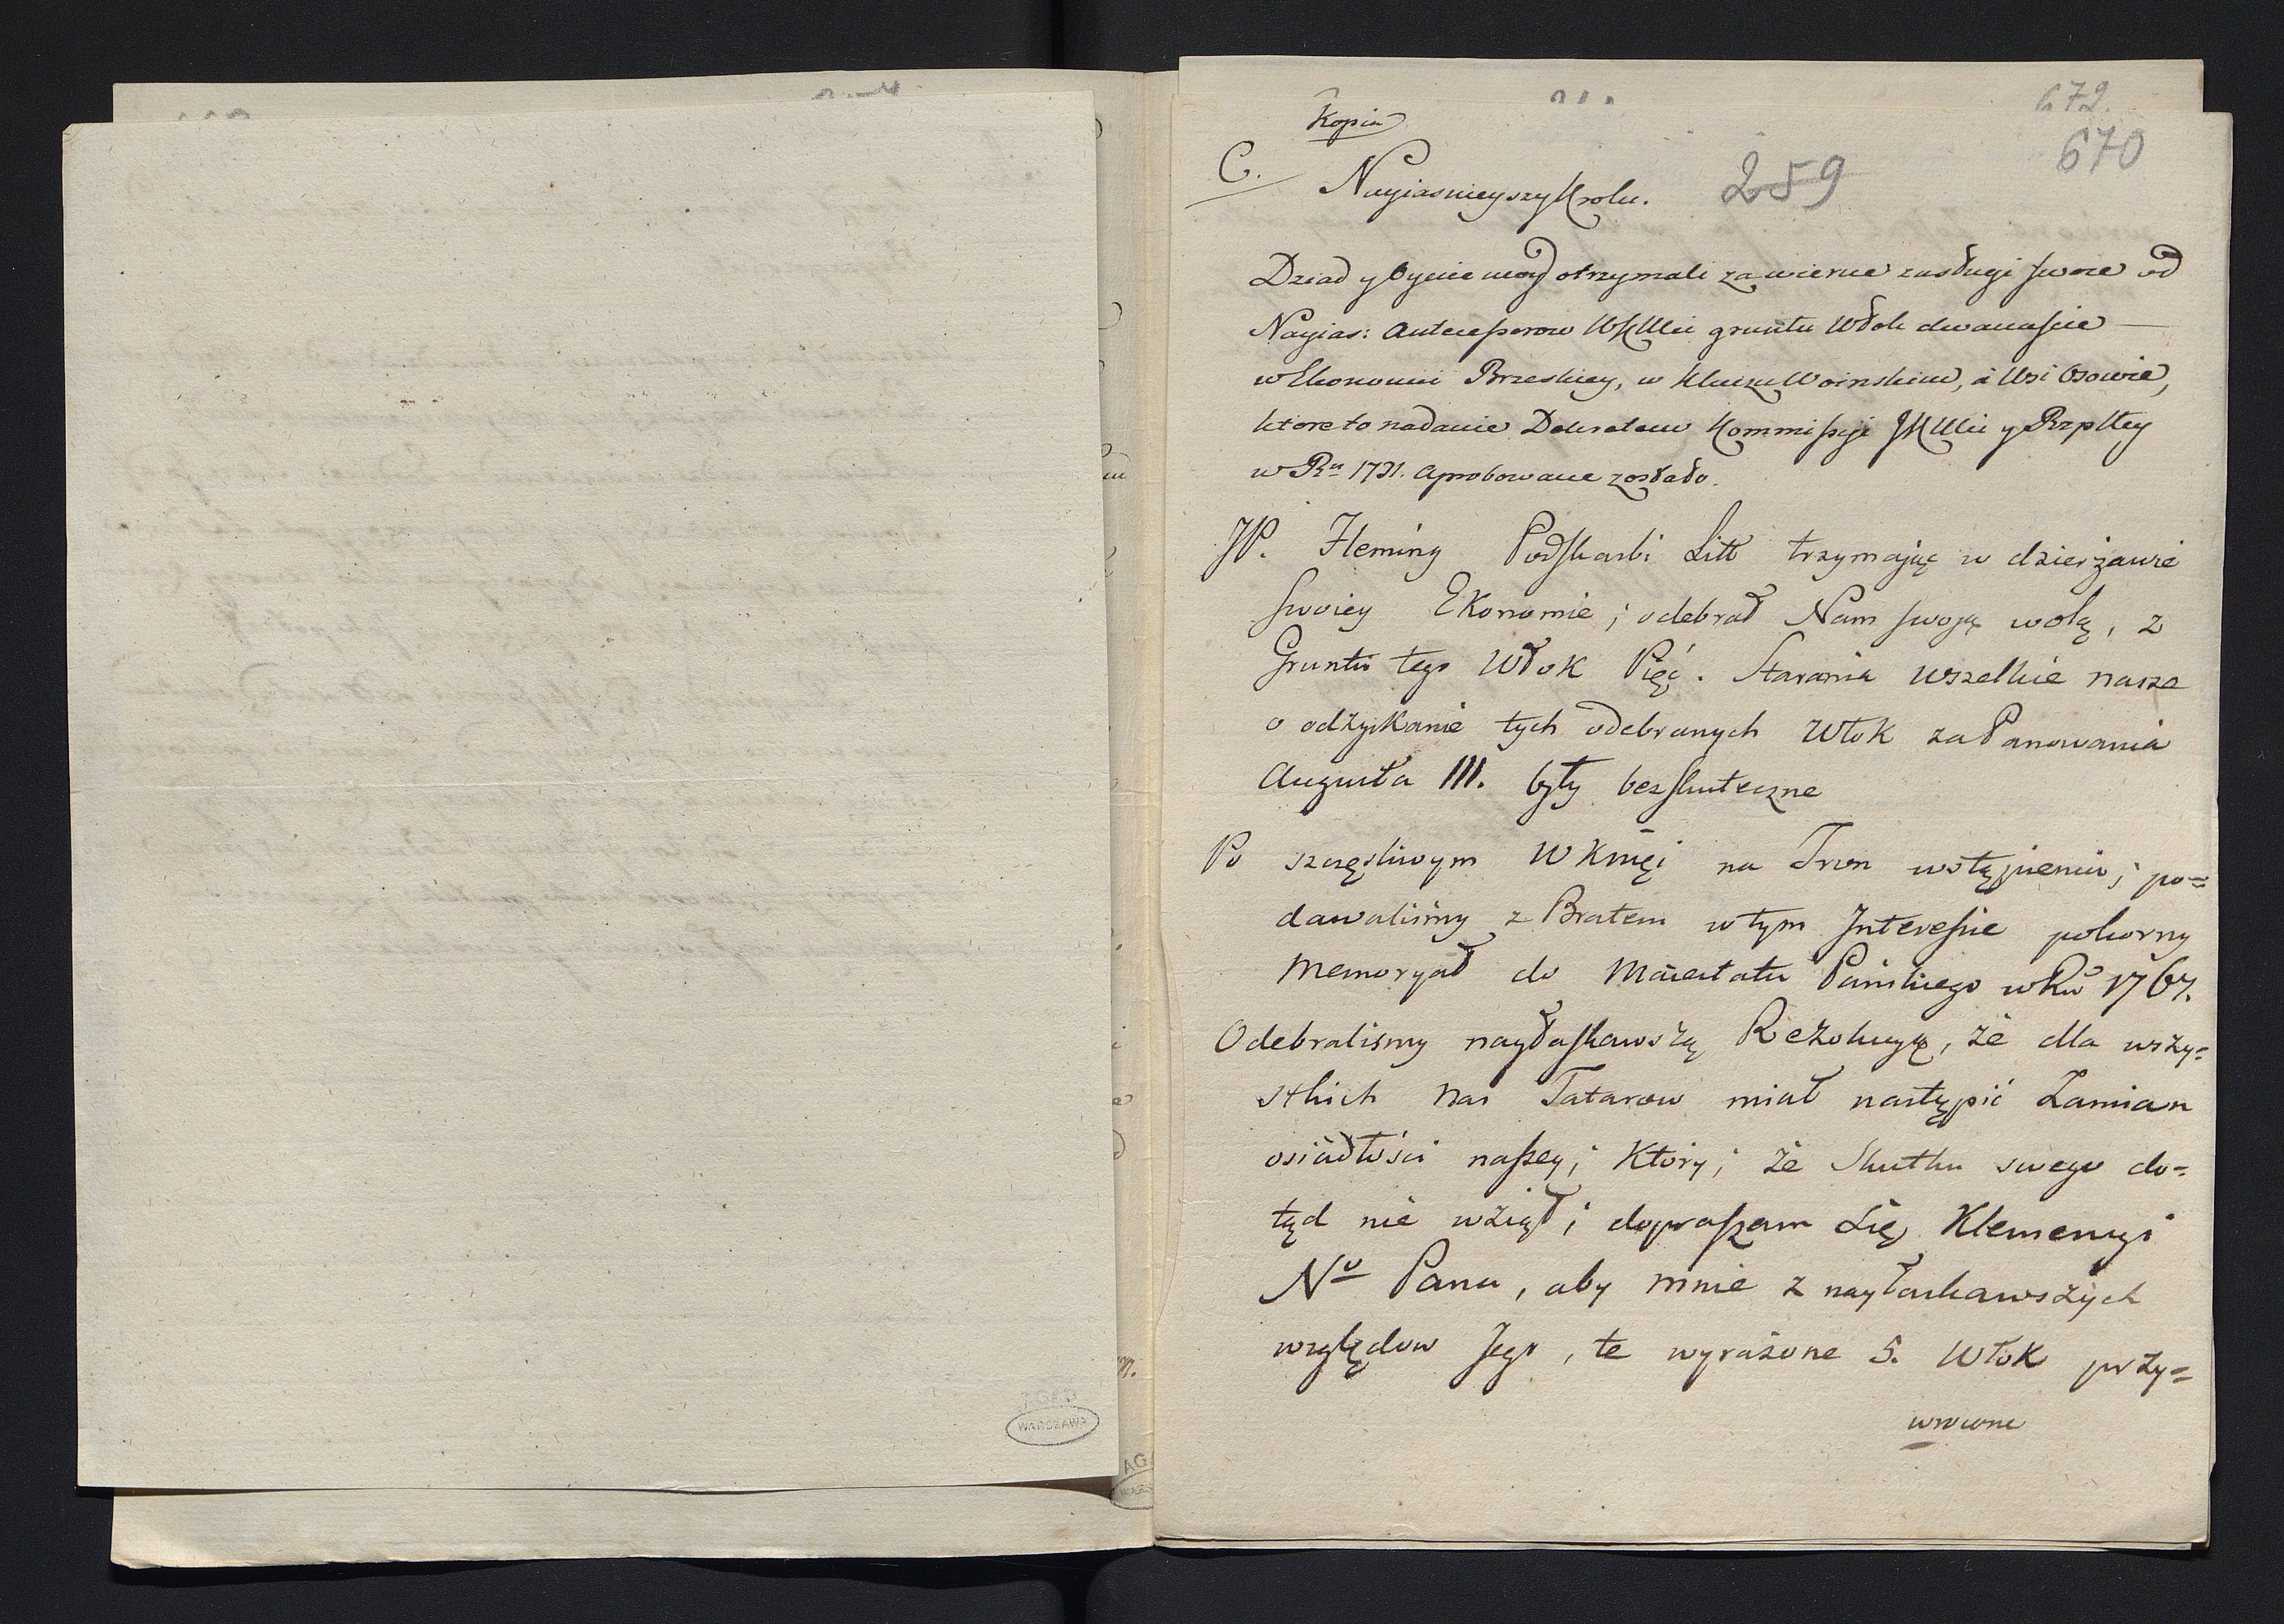 672.
670
Kopia
C.
Nayiasnieyszy Krolu.
259
Dziad y Oyciec moy otrzymali za wierne zasługi swoie od
Nayias: Antecessorow WKMci gruntu Włok dwanascie —
w Ekonomii Brzeskiey, w Kluczu Woinskim, à Wsi Osowie,
ktore to nadanie Dekretem Kommissyi JKMci y Rzpltey
w Ru 1731. aprobowane zostało.
JP. Fleming Podskarbi Litt trzymaiąc w dzierżawie
swoiey Ekonomie; odebrał Nam swoją wolą, z
Gruntu tego Włok Pięć. Starania wszelkie nasze
o odzyskanie tych odebranych Włok za Panowania
Augusta III. były bezskuteczne
Po szczęsliwym WKMci na Tron wstąpieniu, po=
dawaliśmy z Bratem w tym Interessie pokorny
Memoryał do Maiestatu Pańskiego w Ru 1767.
Odebralismy nayłaskawszą Rezolucyą, że dla wszy=
stkich nas Tatarow miał nastąpić Zamian
osiadłości naszey; Który, że Skutku swego do=
tąd nie wziął; dopraszam się Klemencyi
No Pana, aby mnie z nayłaskawszych
względow Jego, te wyrażone 5. Włok przy=
wrocone
AGAD
WARSZAWA